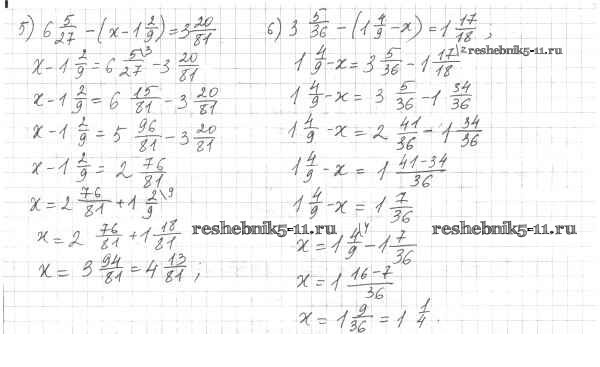 5) 6 5/27 - (x - 1 2/9) = 3 20/81
x - 1 2/9 = 6 5/27 \3 - 3 20/81
x - 1 2/9 = 6 15/81 - 3 20/81
x - 1 2/9 = 5 96/81 - 3 20/81
x - 1 2/9 = 2 76/81
x = 2 76/81 + 1 2/9 \9
x = 2 76/81 + 1 18/81
x = 3 94/81 = 4 13/81 ;
6) 3 5/36 - (1 4/9 - x) = 1 17/18 ;
1 4/9 - x = 3 5/36 - 1 17/18 \2
reshebnik5-11.ru
1 4/9 - x = 3 5/36 - 1 34/36
1 4/9 - x = 2 41/36 - 1 34/36
1 4/9 - x = 1 41-34/36
1 4/9 - x = 1 7/36
reshebnik5-11.ru reshebnik5-11.ru
x = 1 4/9 \4 - 1 7/36
x = 1 16-7/36
x = 1 9/36 = 1 1/4 .